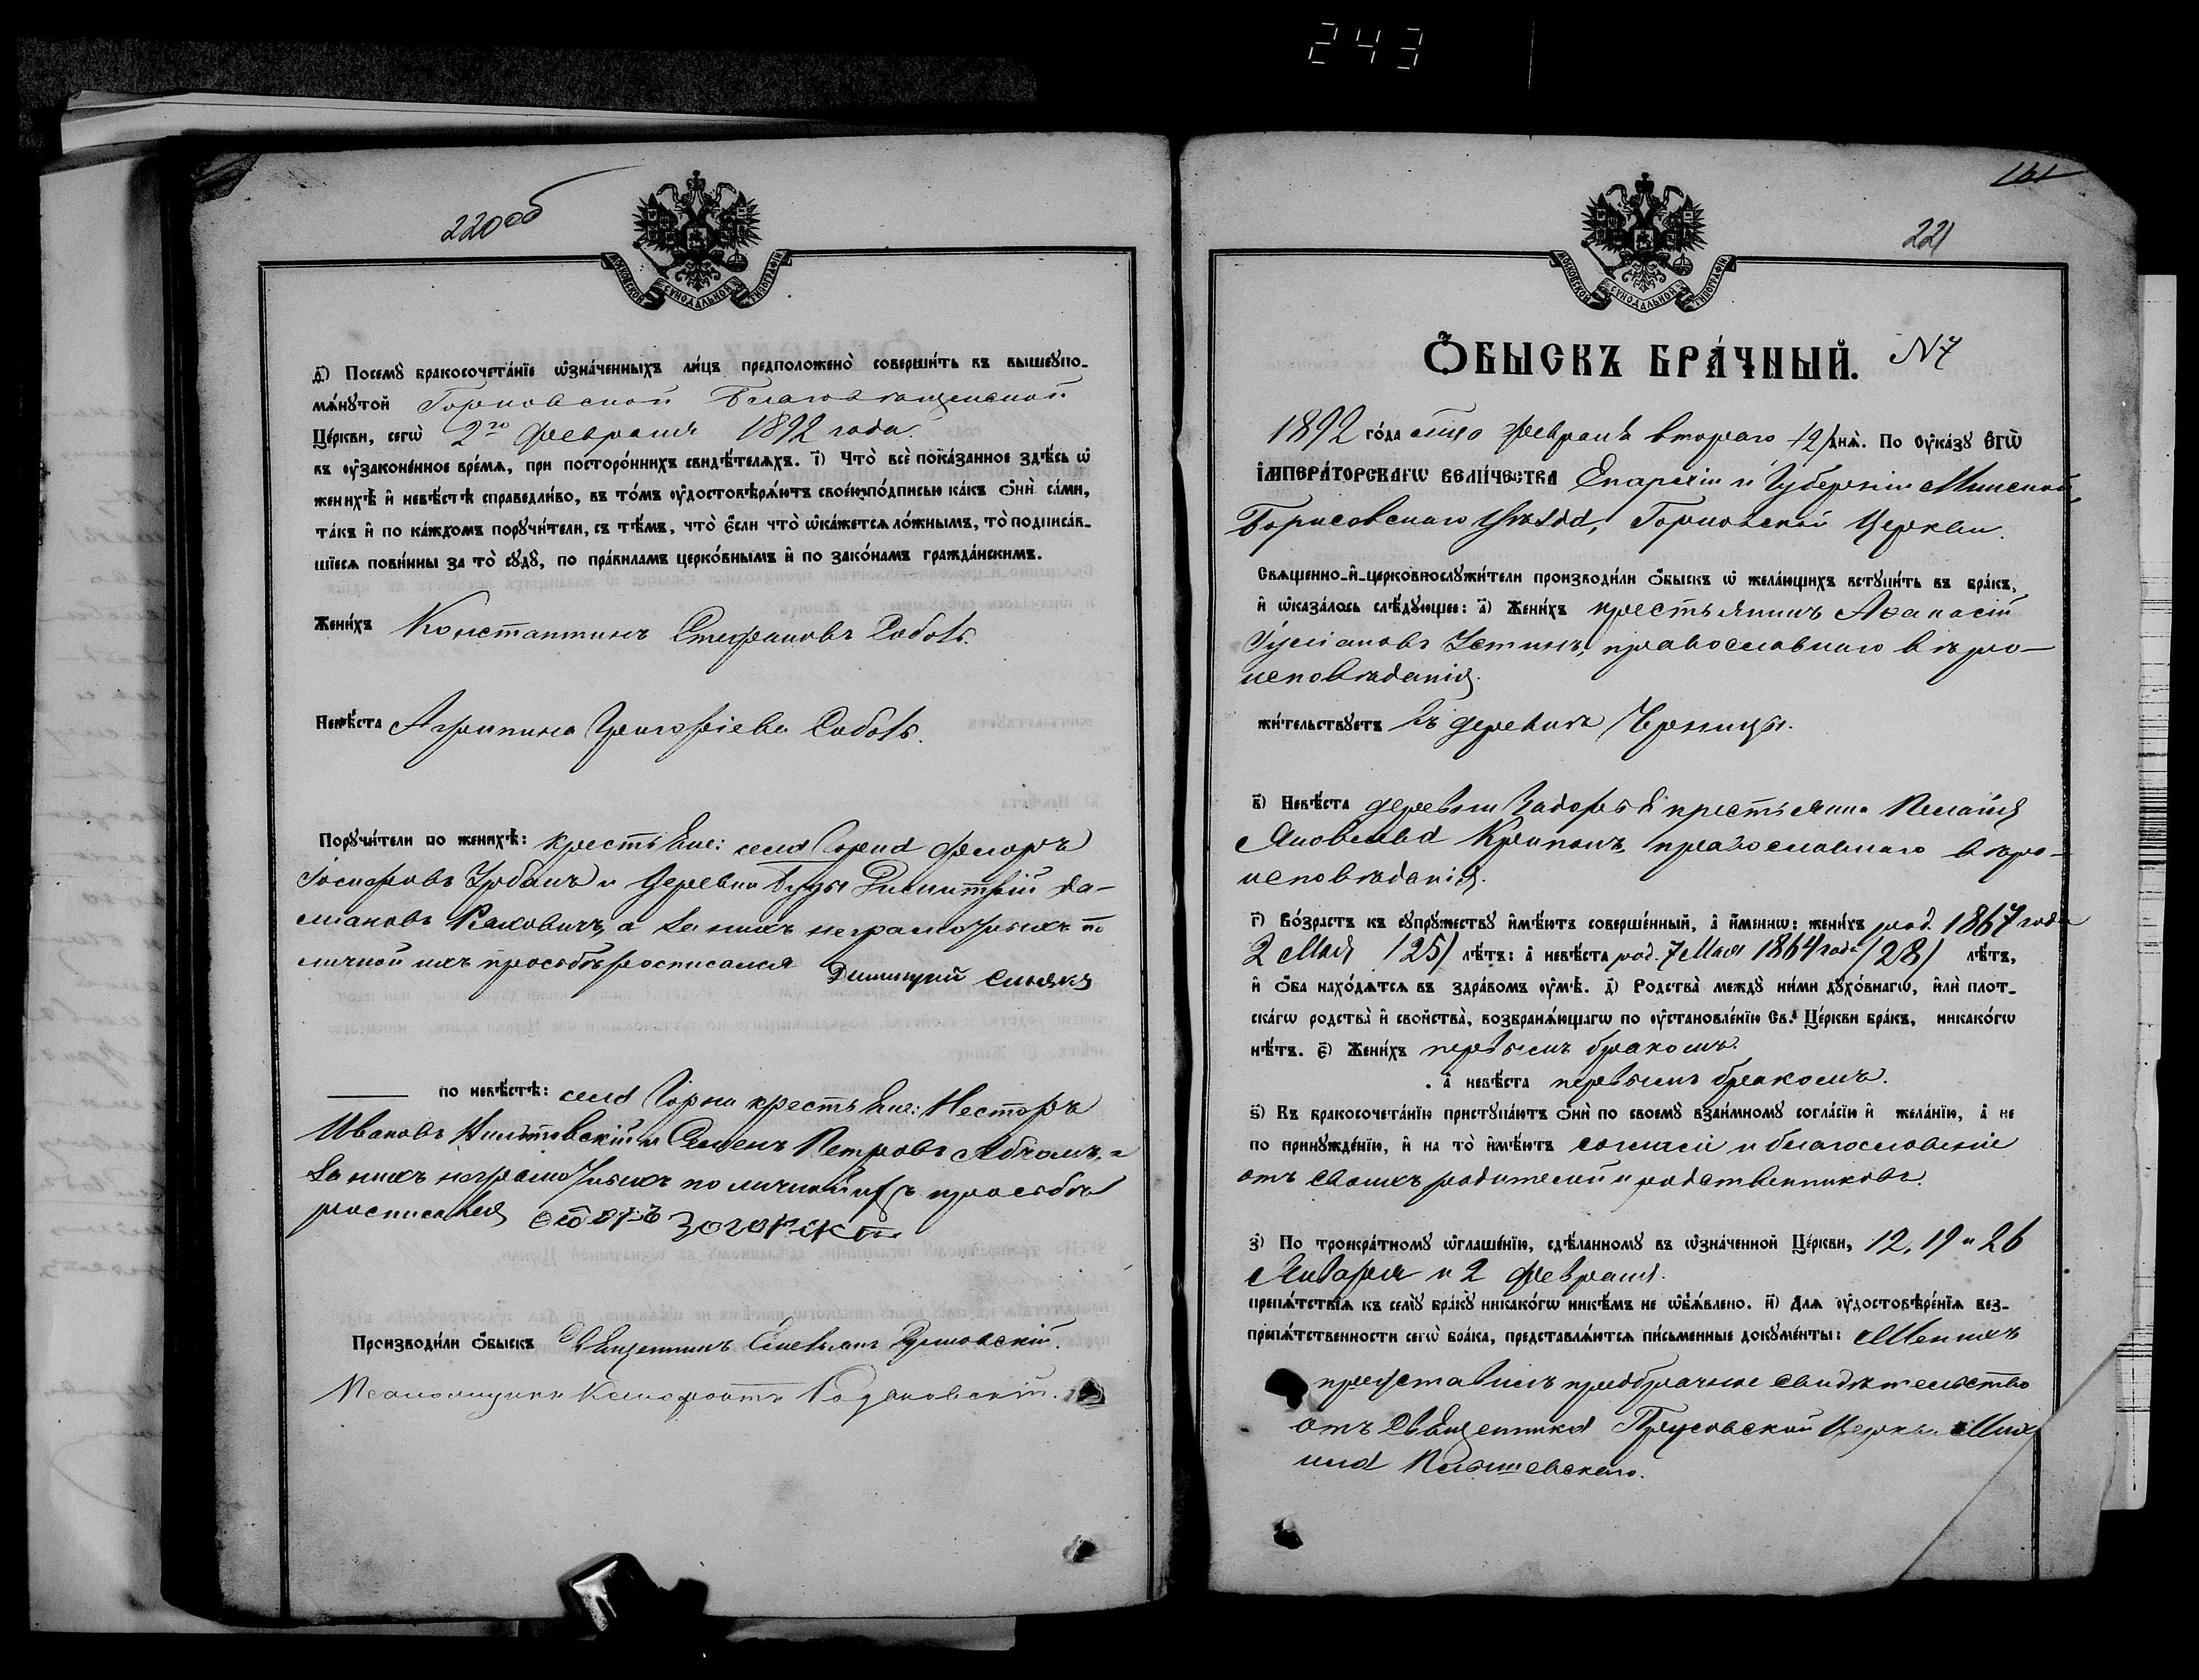 243
220об
МОСКОВСКОЙ СѴНОДАЛЬНОЙ ТИПОГРАФІИ
д҃) Посемꙋ бракосочета́нїе ѡ҆зна́ченныхъ ли́цъ предположено̀ соверши́ть въ вышеꙋпо-
мѧ́нꙋтой Горновской Благовѣщенской
Це́ркви, сегѡ̀ 2го Февраля 1892 года.
въ ᲂу҆зако́ненное вре́мѧ, при посторо́ннихъ свидѣ́телѧхъ. і҃) Что̀ всѐ пока́занное здѣ́сь ѡ҆
женихѣ̀ и҆ невѣ́стѣ справедли́во, въ то́мъ ᲂу҆достовѣрѧ́ютъ свое́ю по́дписью ка́къ ѻ҆нѝ са́ми,
та́къ и҆ по ка́ждомъ порꙋчи́тели, съ тѣ́мъ, что̀ є҆́сли что̀ ѡ҆ка́жетсѧ ло́жнымъ, то̀ подписа́в-
шїесѧ пови́нны за то̀ сꙋдꙋ̀, по пра́виламъ церко́внымъ и҆ по зако́намъ гражда́нскимъ.
Жени́хъ Константинъ Стефановъ Соботь.
Невѣ́ста Агрипина Григоріева Соботь.
Порꙋчи́тели по женихѣ̀: крестьяне: села Горна Феодоръ
Іосифовъ Урбанъ и деревни Буды Димитрій Да-
міановъ Раковичъ, а за нихъ неграмотныхъ по
личной ихъ просьбѣ росписался Димитрій Синяк
по невѣ́стѣ: села Горна крестьяне: Несторъ
Ивановъ и Семенъ Петровъ а
за нихъ неграмотныхъ по личной ихъ просьбѣ
росписался
Производи́ли ѻ҆́быскъ Священникъ
Псаломщикъ Ксенофонтъ
161
221
МОСКОВСКОЙ СѴНОДАЛЬНОЙ ТИПОГРАФІИ
Ѻ҆́БЫСКЪ БРА́ЧНЫЙ. N 7
1892 го́да Февраля втораго /2/ днѧ̀. По ᲂу҆ка́зꙋ Є҆гѡ̀
І҆мпера́торскагѡ Вели́чества Епархіи и Губерніи Минской,
Борисовскаго Уѣзда, Горновской Церкви.
Свѧще́нно-и҆-церковнослꙋжи́тели производи́ли ѻ҆́быскъ ѡ҆ жела́ющихъ встꙋпи́ть въ бра́къ,
и҆ ѡ҆каза́лось слѣ́дꙋющее: а҃) Жени́хъ крестьянинъ Аѳанасій
Іуліановъ Устинъ, православнаго вѣро-
исповѣданія.
жи́тельствꙋетъ въ деревнѣ Черницы.
в҃) Невѣ́ста деревни Задорья крестьянка Пелагія
Яковлева православнаго вѣро-
исповѣданія.
г҃) Во́зрастъ къ сꙋпрꙋ́жествꙋ и҆мѣ́ютъ соверше́нный, а҆ и҆́меннѡ: жени́хъ род. 1867 года
2 Мая /25/ лѣ́тъ: а҆ невѣ́ста род. 7 Мая 1864 года /28/ лѣ́тъ,
и҆ ѻ҆́ба нахо́дѧтсѧ въ здра́вомъ ᲂу҆мѣ̀. д҃) Родства̀ междꙋ ни́ми дꙋхо́внагѡ, и҆лѝ плот-
ска́гѡ родства̀ и҆ свойства̀, возбранѧ́ющагѡ по ᲂу҆становле́нїю Св. Це́ркви бра́къ, никако́гѡ
нѣ́тъ. є҃) Жени́хъ первымъ бракомъ.
а҆ невѣ́ста первымъ бракомъ.
ѕ҃) Къ бракосочета́нїю пристꙋпа́ютъ ѻ҆нѝ по своемꙋ̀ взаи́мномꙋ согла́сїю и҆ жела́нїю, а҆ не
по принꙋжде́нїю, и҆ на то̀ и҆мѣ́ютъ согласіе и благословеніе
отъ своихъ родителей и родственниковъ.
з҃) По троекра́тномꙋ ѡ҆глаше́нїю, сдѣ́ланномꙋ въ ѡ҆зна́ченной Це́ркви, 12, 19 и 26
Января и 2 Февраля.
препѧ́тствїѧ къ семꙋ̀ бра́кꙋ никако́гѡ никѣ́мъ не ѡ҆б̾ѧ́влено. и҃) Длѧ ᲂу҆достовѣре́нїѧ без-
препѧ́тственности сегѡ̀ бра́ка, представлѧ́ютсѧ пи́сьменные докꙋме́нты: Женихъ
представилъ предбрачное свидѣтельство
отъ Священника Прусовской Церкви Миха
ила